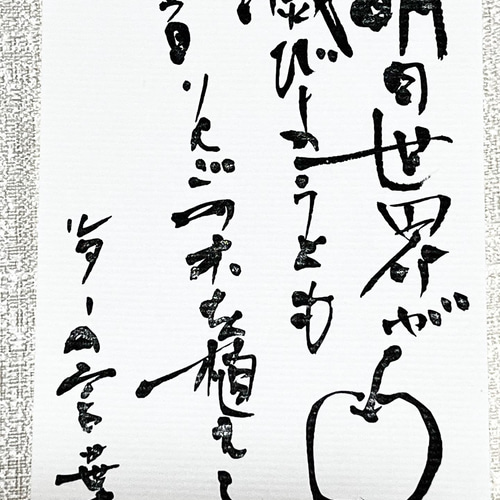 明日世界が
滅びようとも
今日りんごの木を植えし
ルターの言葉